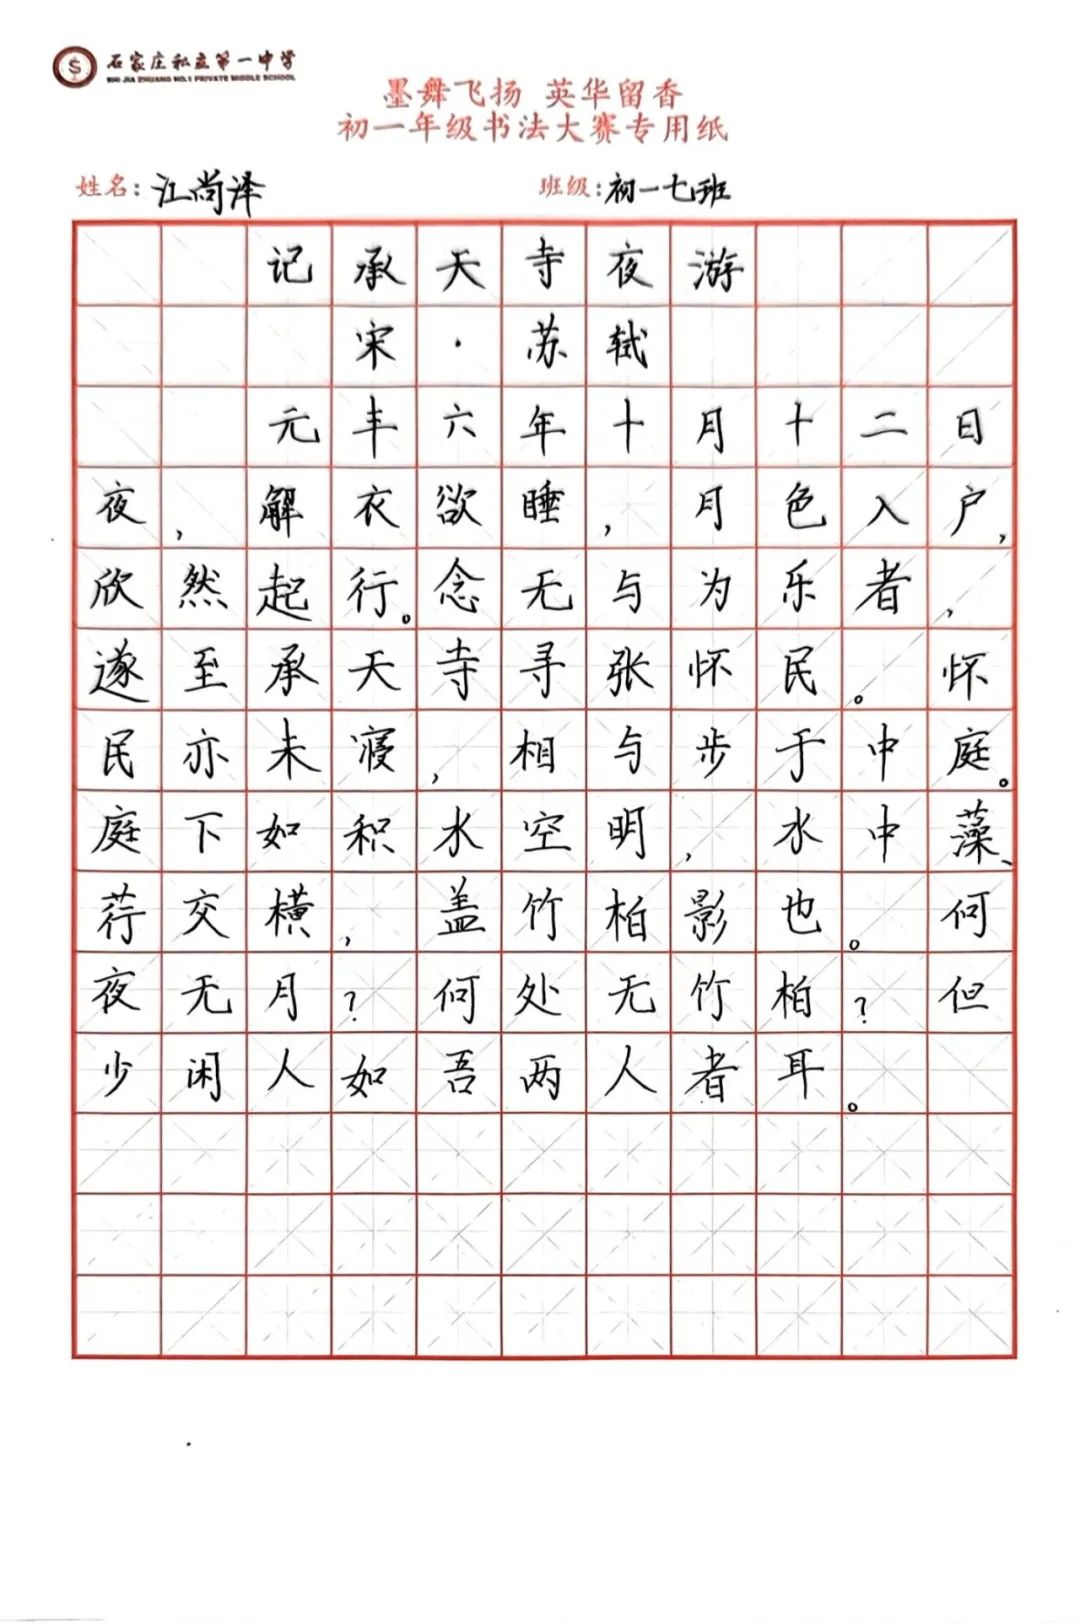 石家庄私立第一中学
SHI JIA ZHUANG NO.1 PRIVATE MIDDLE SCHOOL
墨舞飞扬 英华留香
初一年级书法大赛专用纸
姓名：江尚泽 班级：初一七班
记承天寺夜游
宋·苏轼
元丰六年十月十二日
夜，解衣欲睡，月色入户，
欣然起行。念无与为乐者，
遂至承天寺寻张怀民。怀
民亦未寝，相与步于中庭。
庭下如积水空明，水中藻、
荇交横，盖竹柏影也。何
夜无月？何处无竹柏？但
少闲人如吾两人者耳。